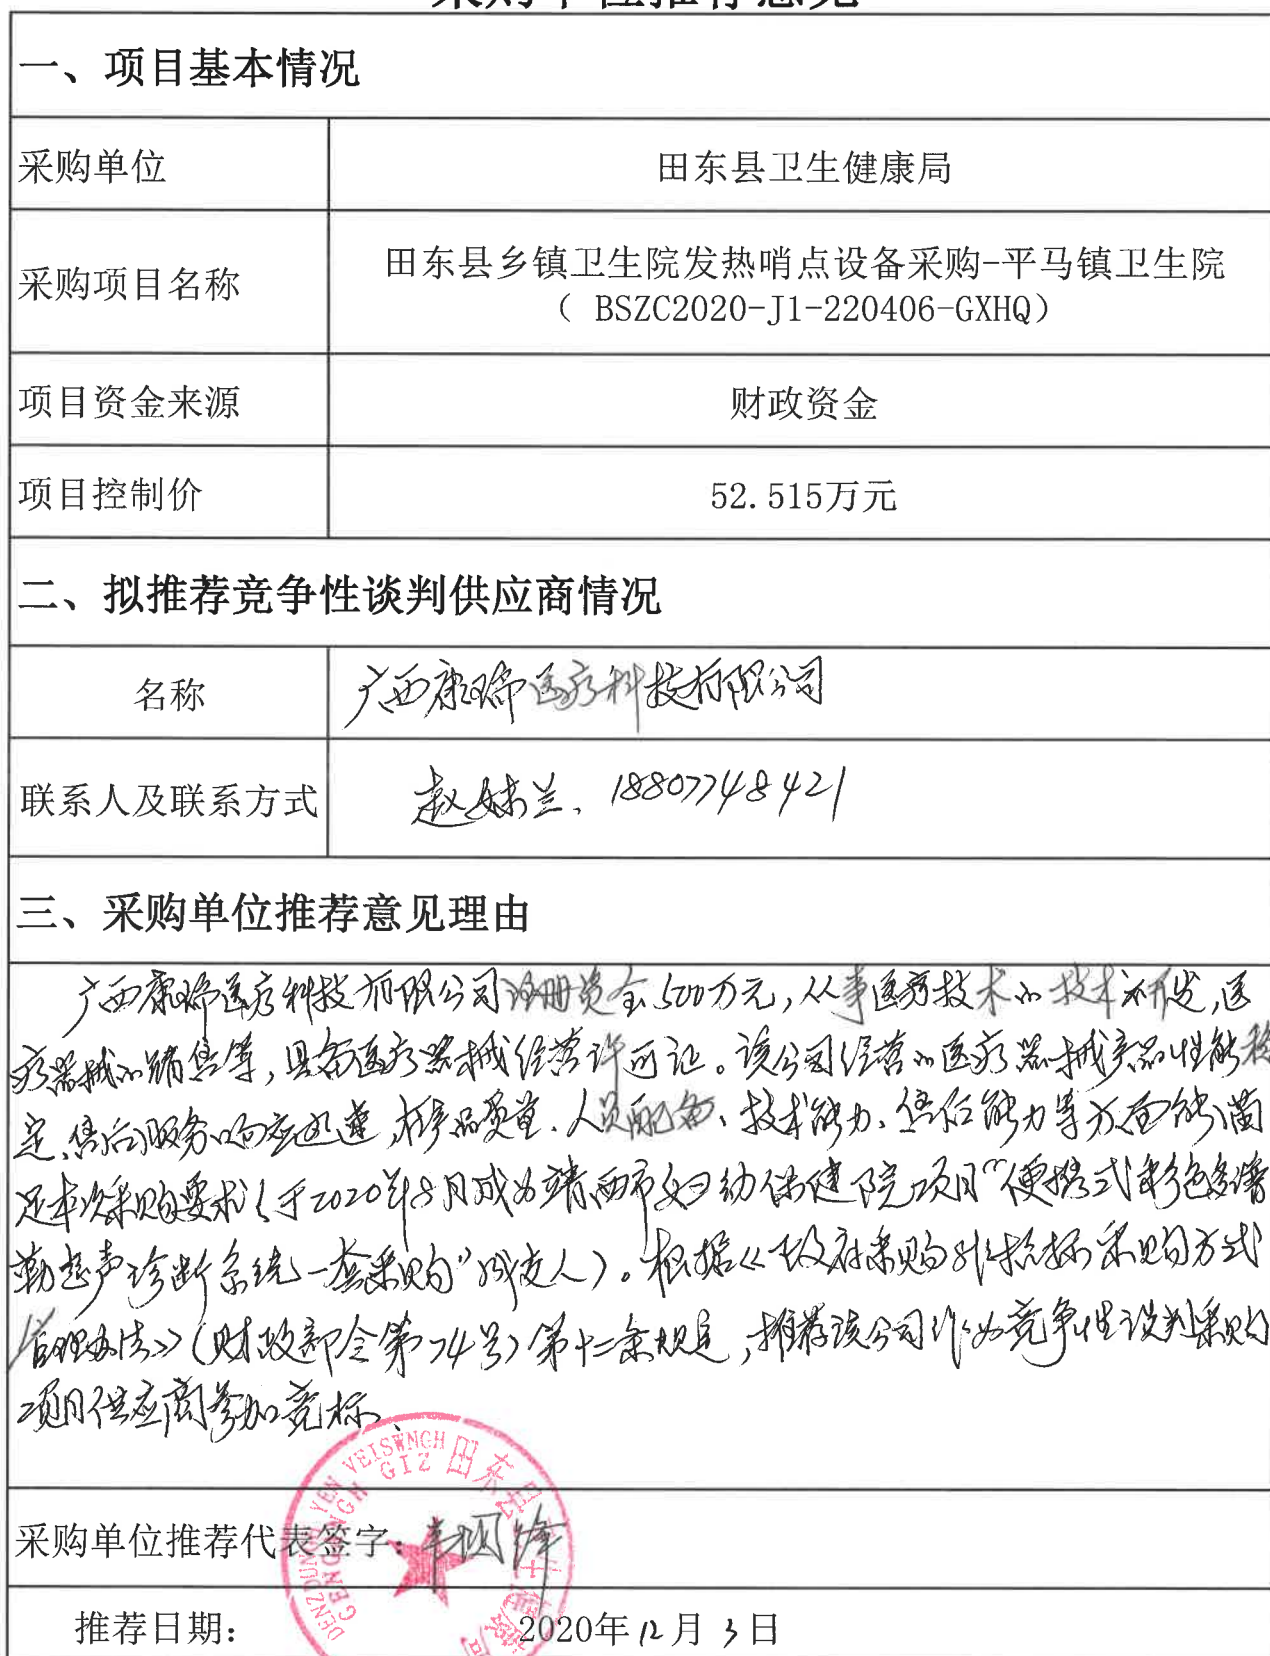 采购单位推荐意见
一、项目基本情况
采购单位 田东县卫生健康局
采购项目名称 田东县乡镇卫生院发热哨点设备采购-平马镇卫生院
（ BSZC2020-J1-220406-GXHQ）
项目资金来源 财政资金
项目控制价 52.515万元
二、拟推荐竞争性谈判供应商情况
名称 广西康瑞医疗科技有限公司
联系人及联系方式 赵妹兰、18807748421
三、采购单位推荐意见理由
广西康瑞医疗科技有限公司注册资金500万元，从事医疗技术的技术开发，医
疗器械的销售等，具备医疗器械经营许可证。该公司经营的医疗器械产品性能稳
定，售后服务响应迅速，在产品质量、人员配备、技术能力、售后能力等方面能满
足本次采购要求（于2020年8月成为靖西市妇幼保健院项目“便携式彩色多普
勒超声诊断系统一套采购”成交人）。根据《政府采购非招标采购方式
管理办法》（财政部令第74号）第十二条规定，推荐该公司作为竞争性谈判采购
项目供应商参加竞标、
采购单位推荐代表签字：
DENZDUNGH YEN VEISWNGH GENGANGH GIZ 田东县卫生健康局
推荐日期： 2020年12月3日